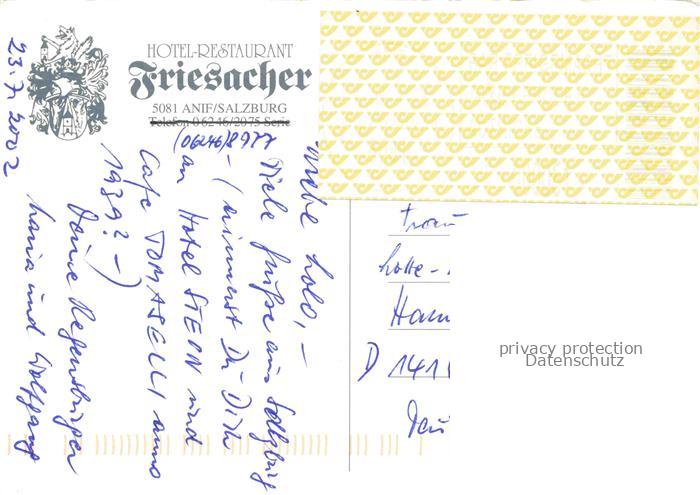 HOTEL-RESTAURANT
Friesacher
5081 ANIF/SALZBURG
Telefon 06246/2075 Serie
(06246)8977
23.7.2002
Liebe Lolo, –
Viele Grüße aus Salzburg
– (erinnerst Du Dich
an Hotel STERN und
Cafe TOMASELLI anno
1939? –)
Deine Regensburger
und Wolfgang
Frau
Lotte-
Ham
D 141
Deu
privacy protection
Datenschutz